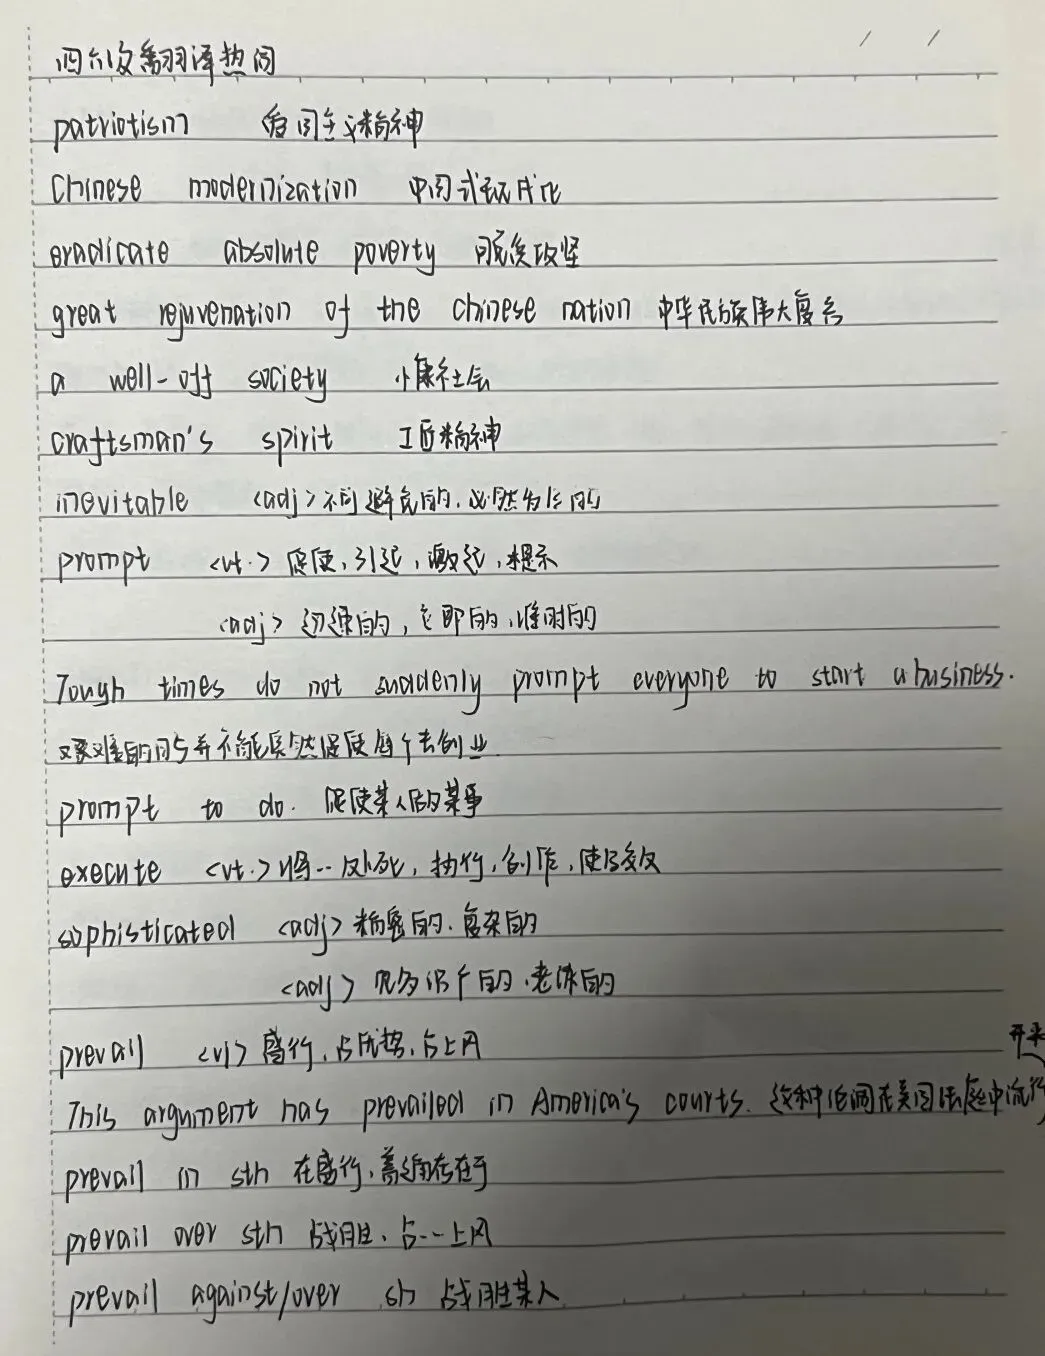 四六级翻译热词
patriotism 爱国主义精神
Chinese modernization 中国式现代化
eradicate absolute poverty 脱贫攻坚
great rejuvenation of the Chinese nation 中华民族伟大复兴
a well-off society 小康社会
craftsman's spirit 工匠精神
inevitable <adj> 不可避免的、必然发生的
prompt <vt.> 促使，引起，激起，提示
<adj> 迅速的，立即的，准时的
Tough times do not suddenly prompt everyone to start a business.
艰难的时与并不能突然促使每个去创业
prompt to do. 促使某人做某事
execute <vt.> 将--处死，执行，创作，使生效
sophisticated <adj> 精密的、复杂的
<adj> 见多识广的、老练的
prevail <vi> 盛行，占优势，占上风
This argument has prevailed in America's courts. 这种论调在美国法庭中流行开来
prevail in sth 在盛行，普遍存在于
prevail over sth 战胜、占--上风
prevail against/over sb 战胜某人